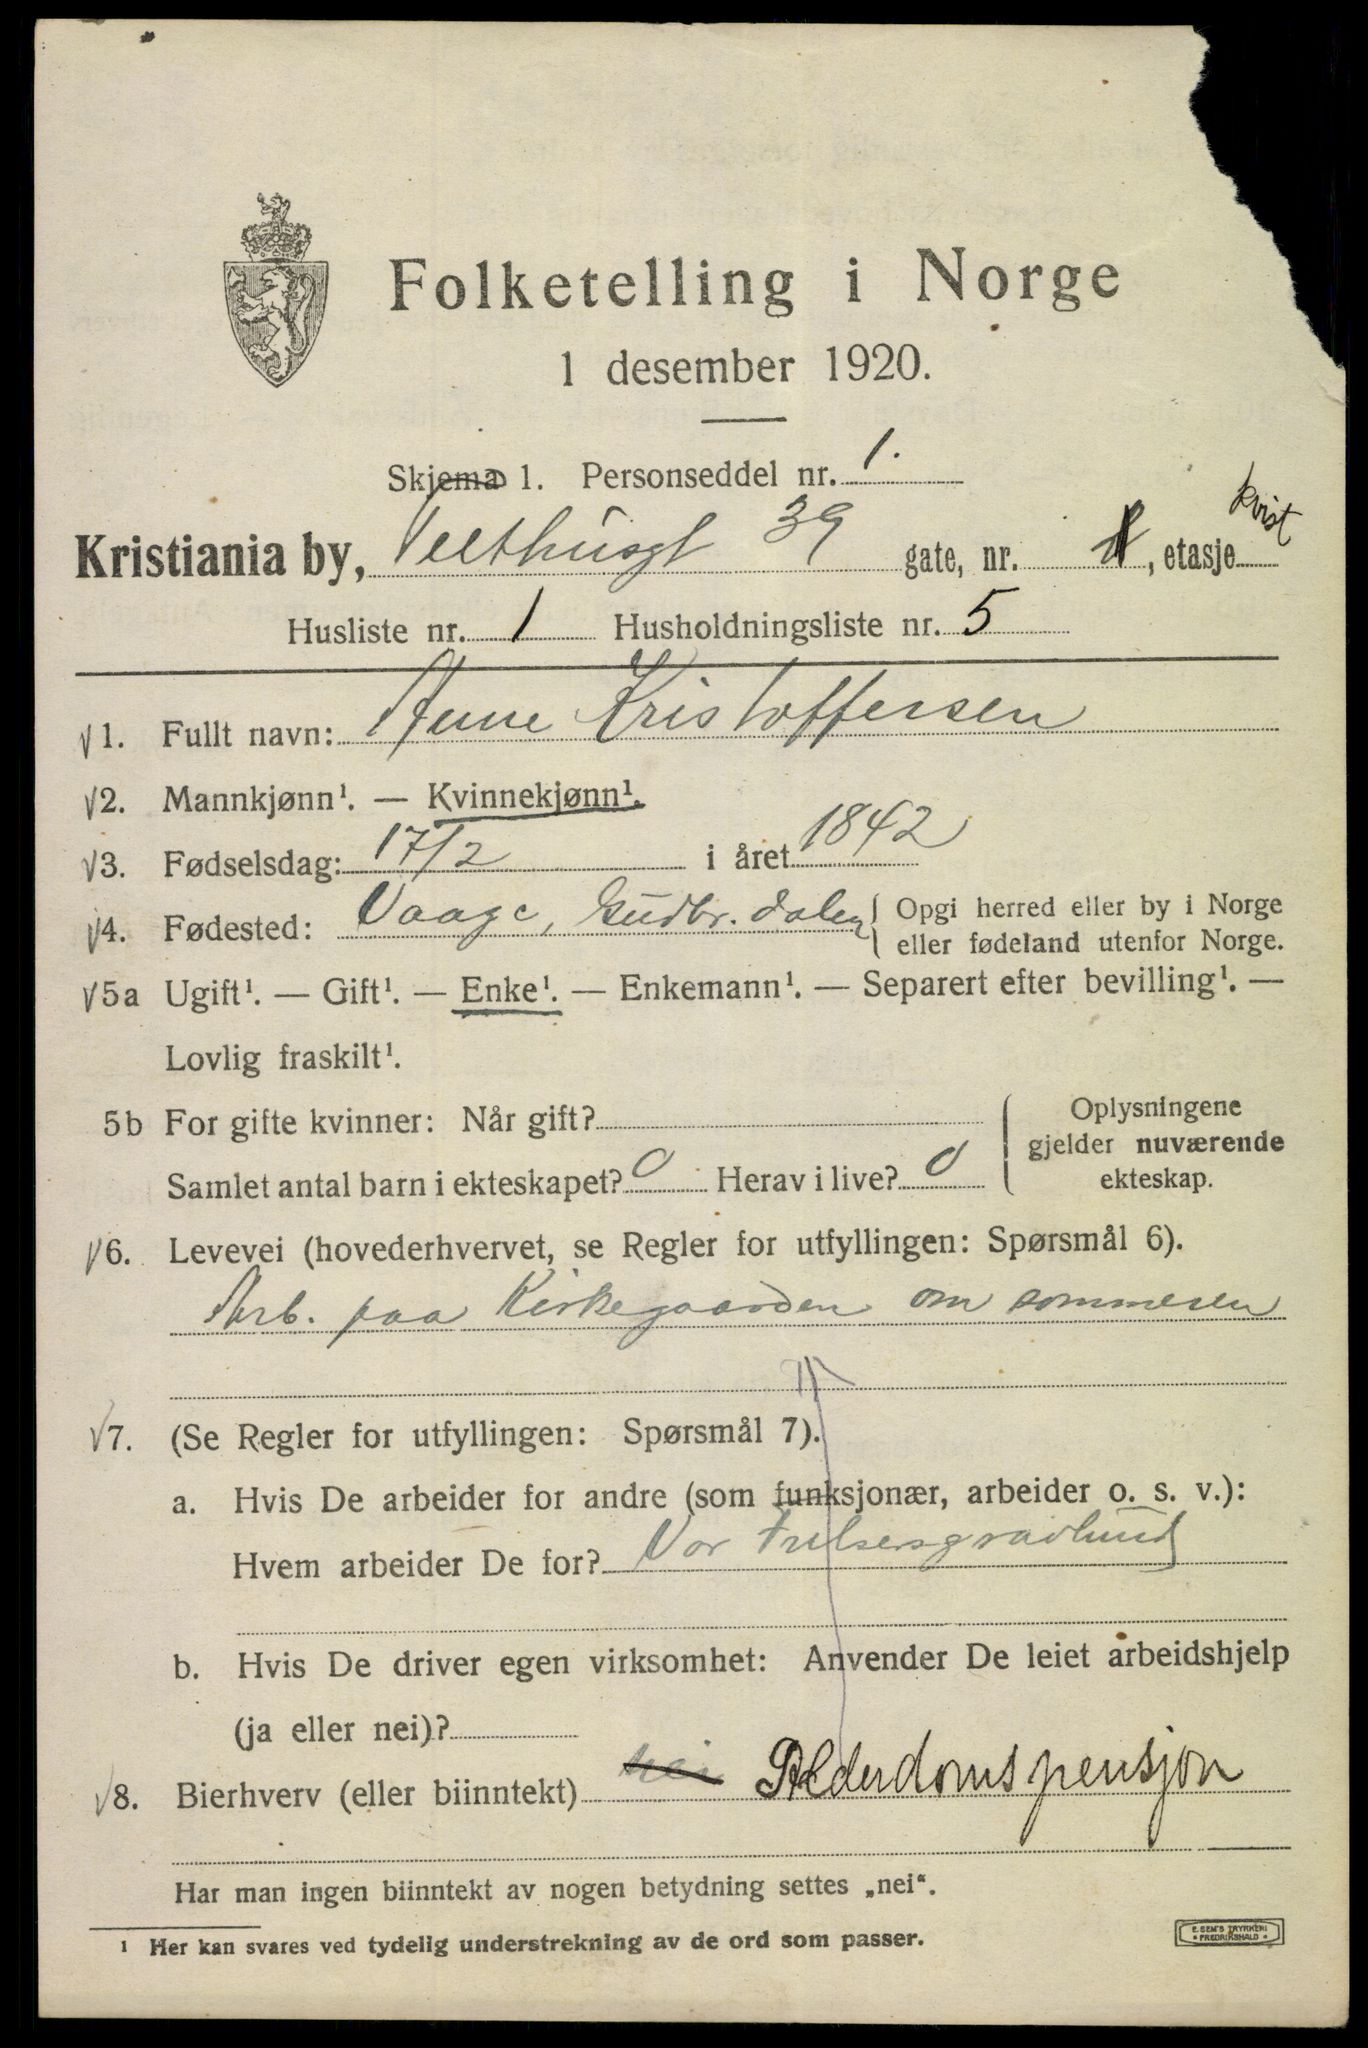 Folketelling i Norge
1 desember 1920.
Skjema 1. Personseddel nr. 1.
Kristiania by, Velthusgt 39 gate, nr. , etasje kvist
Husliste nr. 1 Husholdningsliste nr. 5
√1. Fullt navn: Anne Kristoffersen
√2. Mannkjønn¹. — Kvinnekjønn¹.
√3. Fødselsdag: 17/2 i året 1842
√4. Fødested: Vaage, Gudbr. dalen { Opgi herred eller by i Norge
eller fødeland utenfor Norge.
√5a Ugift¹. — Gift¹. — Enke¹. — Enkemann¹. — Separert efter bevilling¹. —
Lovlig fraskilt¹.
5b For gifte kvinner: Når gift?
Samlet antal barn i ekteskapet? 0 Herav i live? 0
Oplysningene
gjelder nuværende
ekteskap.
√6. Levevei (hovederhvervet, se Regler for utfyllingen: Spørsmål 6).
Arb. paa Kirkegaarden om sommeren
√7. (Se Regler for utfyllingen: Spørsmål 7).
a. Hvis De arbeider for andre (som funksjonær, arbeider o. s. v.):
Hvem arbeider De for? Vor Frelsersgravlund
b. Hvis De driver egen virksomhet: Anvender De leiet arbeidshjelp
(ja eller nei)?
√8. Bierhverv (eller biinntekt) nei Alderdomspensjon
Har man ingen biinntekt av nogen betydning settes „nei“.
¹ Her kan svares ved tydelig understrekning av de ord som passer.
E. SEM'S TRYKKERI
• FREDRIKSHALD •